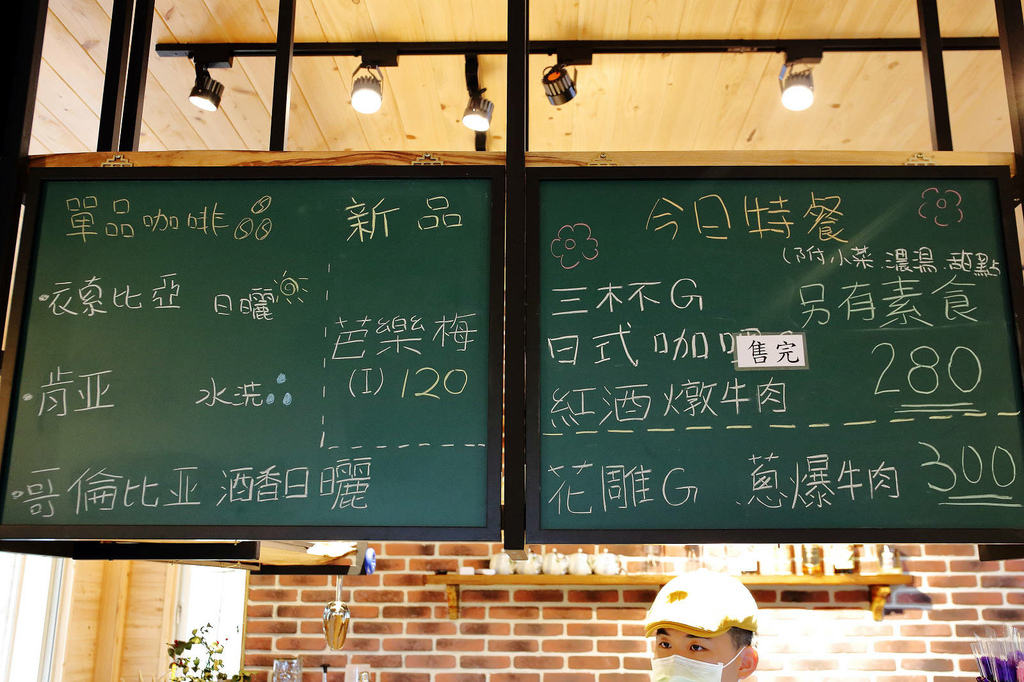 單品咖啡
·衣索比亞 日曬
·肯亚 水洗
·哥倫比亚 酒香日曬
新品
芭樂梅
(I) 120
今日特餐
(附小菜.濃湯.甜點
三杯不G 另有素食
日式咖
售完
280
紅酒燉牛肉
花雕G 蔥爆牛肉 300